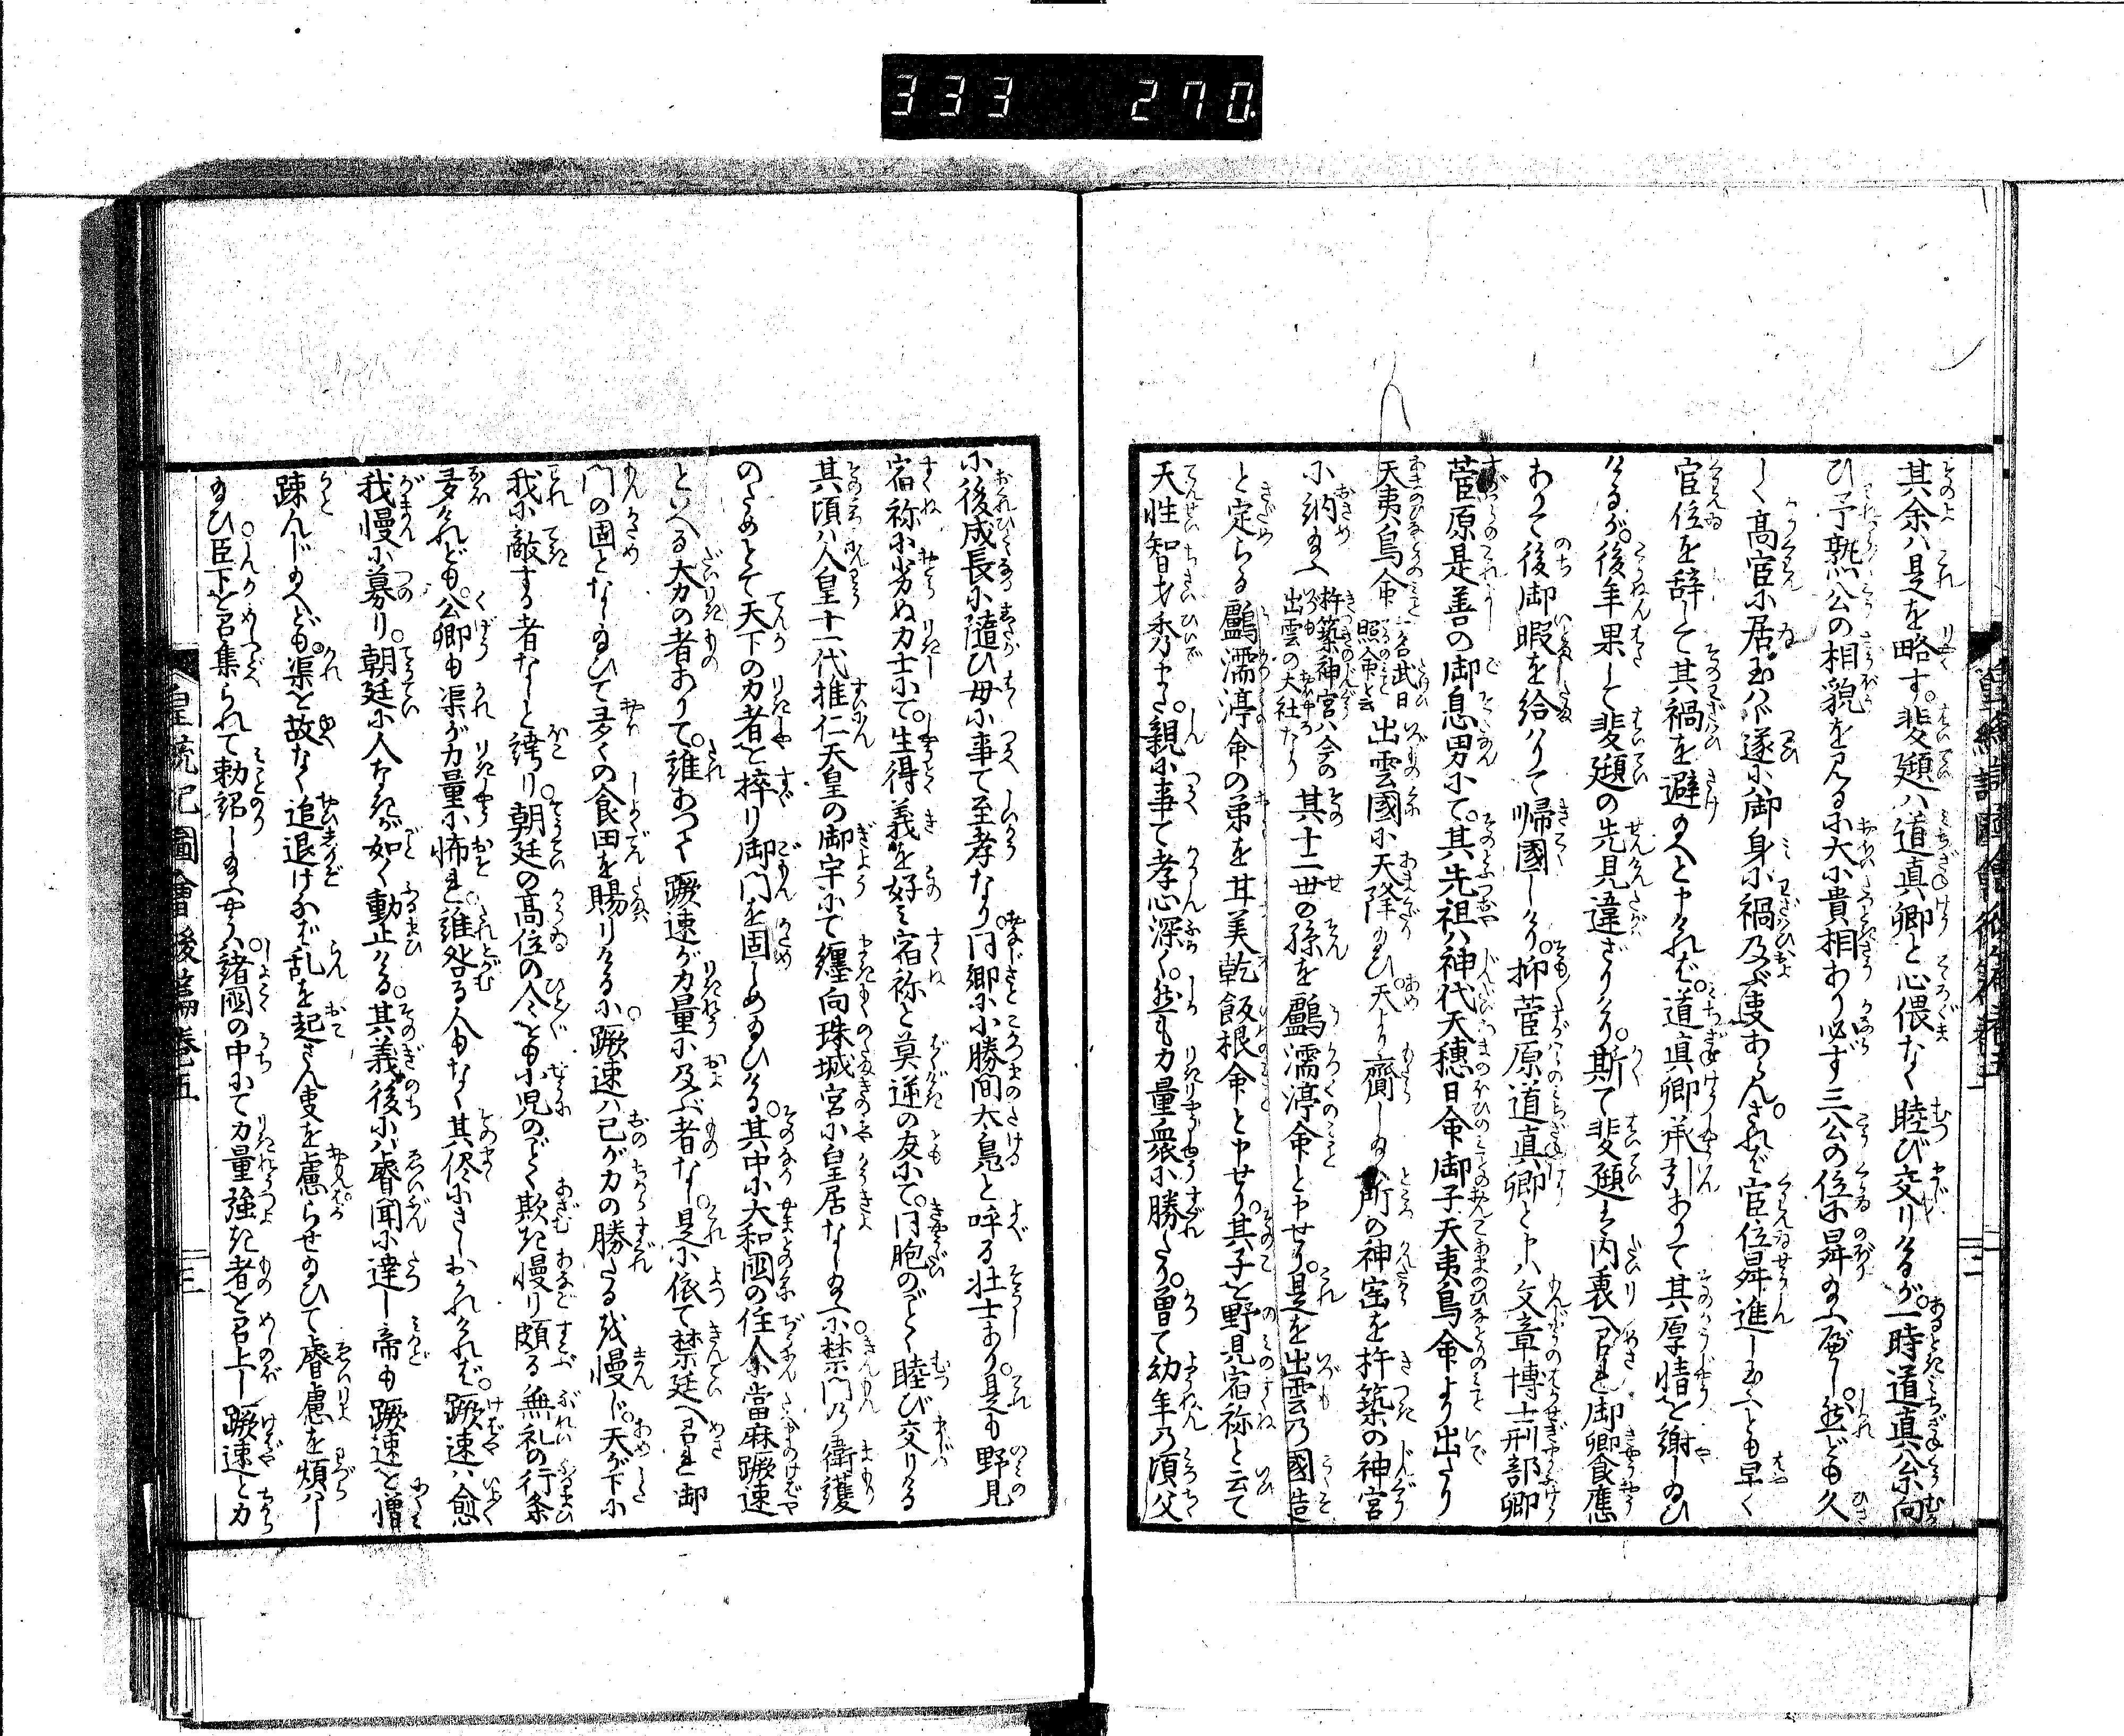 333 270
其余ハ是を略す。裴頲ハ道真卿と心偎なく睦び交りけるが。一時道真公に向
ひ予熟公の相貌を見るに大に貴相あり必ず三公の位に昇り給ふべし。然ども久
しく高官に居玉はゞ遂に御身に禍及ぶ事あらん。されば官位昇進し玉ふとも早く
官位を辞して其禍を避給へと申ければ。道真卿承引ありて其厚情を謝し給ひ
けるが。後年果して裴頲の先見違ざりけり。斯て裴頲を内裏へ召れ御饗應
ありて後御暇を給はりて帰國しけり。抑菅原道真卿と申ハ文章博士刑部卿
菅原是善の御息男にて。其先祖ハ神代天穂日命御子天夷鳥命より出たり
天夷鳥命一名武日照命と云出雲國に天降給ひ。天より齎し給ふ所の神宝を杵築の神宮
に納給ふ杵築神宮ハ今の出雲の大社なり其十二世の孫を鸕濡渟命と申せり。是を出雲乃國造
と定らる鸕濡渟命の弟を甘美乾飯根命と申せり。其子を野見宿祢と云て
天性智才秀申き。親に事て孝心深く。然も力量衆に勝たり。曽て幼年乃頃父
に後成長に隨ひ母に事て至孝なり。同郷に小勝間太梟と呼る壮士あり。是も野見
宿祢に劣ぬ力士にて。生得義を好み宿祢と莫逆の友にて。同胞のごとく睦び交りける
其頃ハ人皇十一代推仁天皇の御宇にて纏向珠城宮に皇居なし給ふに。禁門乃衛護
のためとて天下の力者を擇り御門を固しめ給ひける。其中に大和國の住人に當麻蹶速
といへる大力の者ありて。誰あつて蹶速が力量に及ぶ者なし。是に依て禁廷へ召れ御
門の固となし給ひて多くの食田を賜りけるに。蹶速ハ己が力の勝たるを慢じ。天が下に
我に敵する者なしと誇り。朝廷の高位の人々をも小児のごとく欺き慢り頗る無礼の行条
多けれども。公卿も渠が力量に怖れ。誰咎る人もなく其侭にさしおかれければ。蹶速ハ愈
我慢に募り。朝廷に人なきが如く動止ける。其義後にハ睿聞に達し帝も蹶速を憎
疎んじ給へども。渠を故なく追退けなば乱を起さん事を慮らせ給ひて睿慮を煩はし
給ひ。臣下を召集られて勅詔し給ふやう。諸國の中にて力量強き者を召上し蹶速と力
皇統記圖會後篇巻五
三